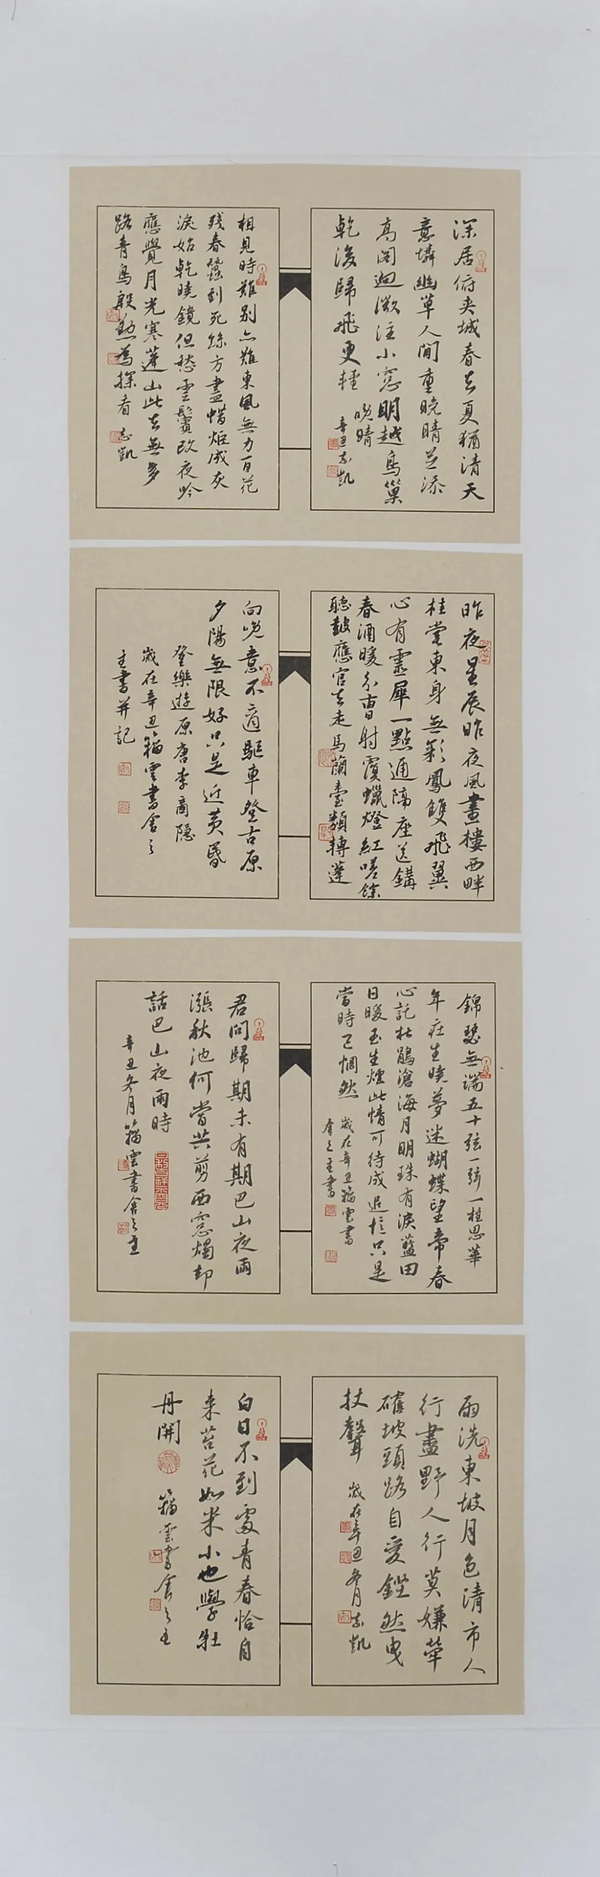 深居俯夹城春去夏猶清天
意憐幽草人間重晚晴并添
高閣迥微注小窓明越鳥巢
乾後歸飛更輕
晚晴
辛丑志凱
相見時難别亦難東風無力百花
残春蠶到死絲方盡蜡炬成灰
淚始乾曉鏡但愁雲鬢改夜吟
應覺月光寒蓬山此去無多
路青鳥殷勤為探看 志凱
昨夜星辰昨夜風畫樓西畔
桂堂東身無彩鳳雙飛翼
心有靈犀一點通隔座送鉤
春酒暖分曹射覆蠟燈紅嗟餘
聽鼓應官去走馬蘭臺類轉蓬
向晚意不適驅車登古原
夕陽無限好只是近黄昏
登樂遊原唐李商隱
歲在辛丑籀雲書舍之
主書并記
錦瑟無端五十弦一弦一柱思華
年莊生曉夢迷蝴蝶望帝春
心託杜鵑滄海月明珠有淚藍田
日暖玉生煙此情可待成追憶只是
當時已惘然 歲在辛丑籀雲書
舍之主書
君問歸期未有期巴山夜雨
漲秋池何當共剪西窓燭却
話巴山夜雨時
辛丑冬月籀雲書舍之主
雨洗東坡月色清市人
行盡野人行莫嫌犖
確坡頭路自愛鏗然曳
杖聲 歲在辛丑冬月志凱
白日不到處青春恰自
来苔花如米小也學牡
丹開 籀雲書舍之主